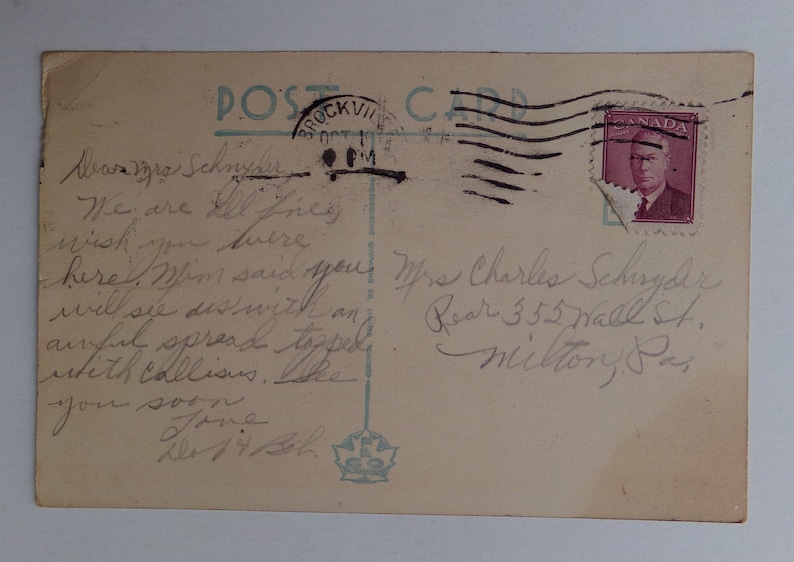 POST CARD
BROCKVILLE
OCT 1
PM
CANADA
Dear Mrs Schnyder,
We are all fine,
wish you were
here. Mim said you
will see us with an
awful spread topped
with callisus. See
you soon
Love
Dot & Bob.
Mrs Charles Schnyder
Rear 355 Wall St.
Milton, Pa.
PECO